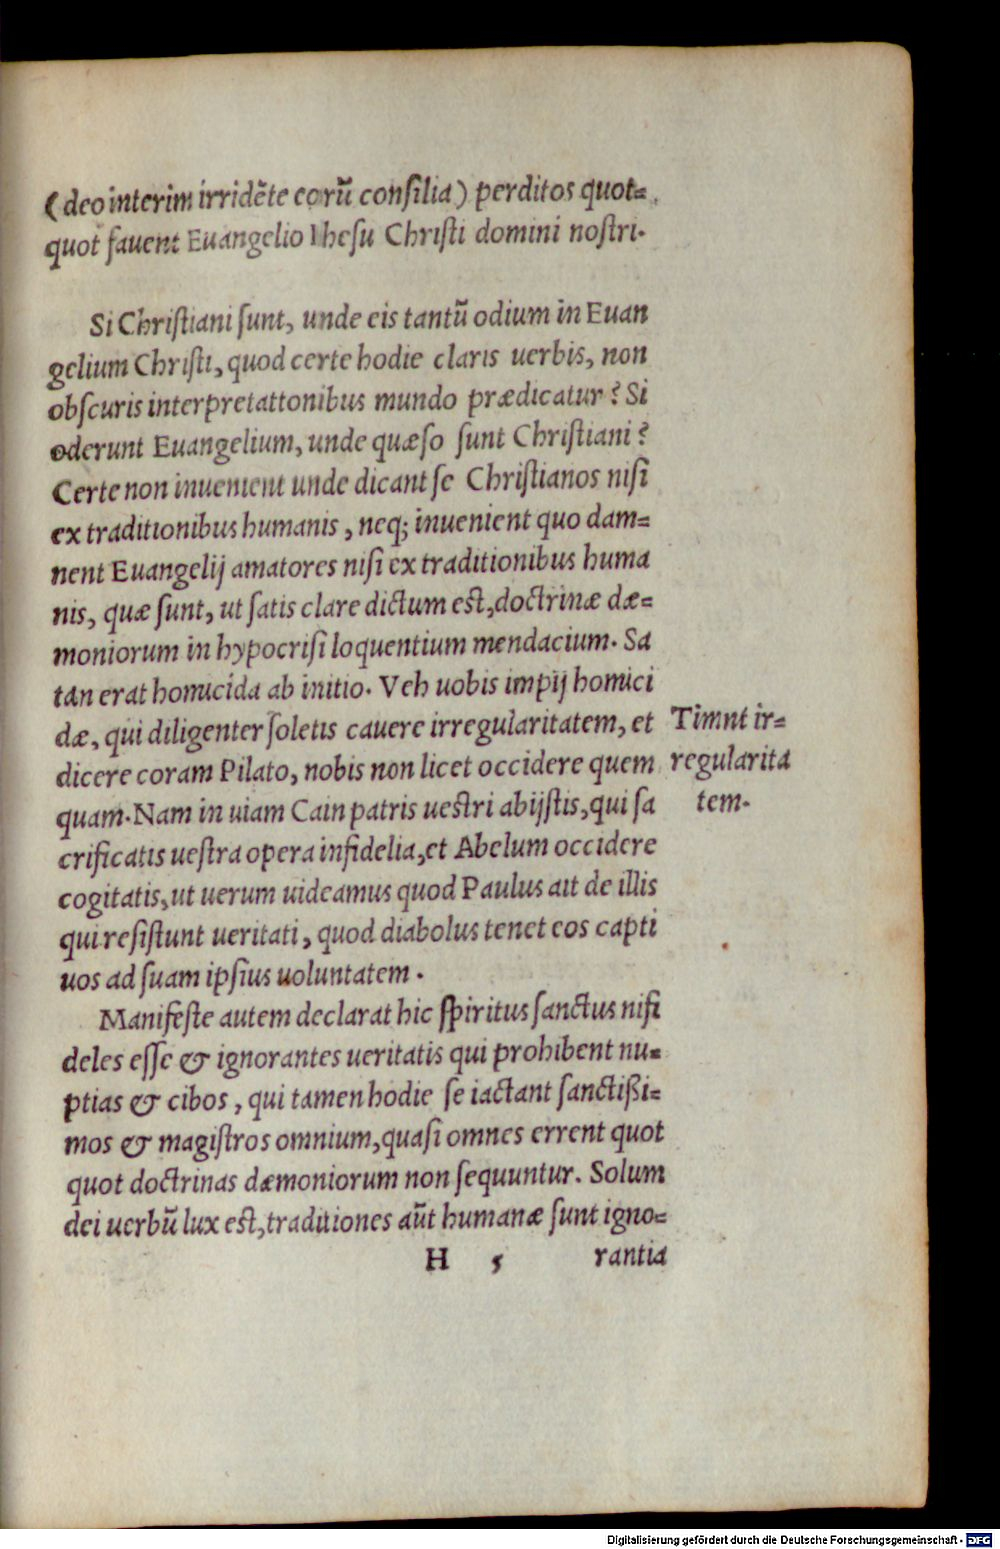 (deo interim irridēte eorū consilia) perditos quot=
quot fauent Euangelio Ihesu Christi domini nostri.
Si Christiani sunt, unde eis tantū odium in Euan
gelium Christi, quod certe hodie claris uerbis, non
obscuris interpretattonibus mundo prædicatur? Si
oderunt Euangelium, unde quæso sunt Christiani?
Certe non inuenient unde dicant se Christianos nisi
ex traditionibus humanis, neq; inuenient quo dam=
nent Euangelij amatores nisi ex traditionibus huma
nis, quæ sunt, ut satis clare dictum est, doctrinæ dæ=
moniorum in hypocrisi loquentium mendacium. Sa
tan erat homicida ab initio. Veh uobis impij homici
dæ, qui diligenter soletis cauere irregularitatem, et
dicere coram Pilato, nobis non licet occidere quem
quam. Nam in uiam Cain patris uestri abijstis, qui sa
crificatis uestra opera infidelia, et Abelum occidere
cogitatis, ut uerum uideamus quod Paulus ait de illis
qui resistunt ueritati, quod diabolus tenet eos capti
uos ad suam ipsius uoluntatem.
Timnt ir=
regularita
tem.
Manifeste autem declarat hic spiritus sanctus nifi
deles esse & ignorantes ueritatis qui prohibent nu=
ptias & cibos, qui tamen hodie se iactant sanctißi=
mos & magistros omnium, quasi omnes errent quot
quot doctrinas dæmoniorum non sequuntur. Solum
dei uerbū lux est, traditiones aūt humanæ sunt igno=
H 5 rantia
Digitalisierung gefördert durch die Deutsche Forschungsgemeinschaft - DFG